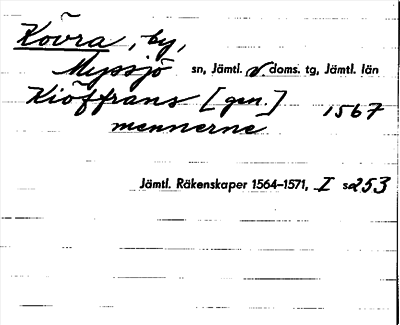 Kövra, by,
Myssjö sn, Jämtl. v. doms. tg, Jämtl. län
Kiöffrans [gen.] 1567
mennerne
Jämtl. Räkenskaper 1564–1571, I s 253